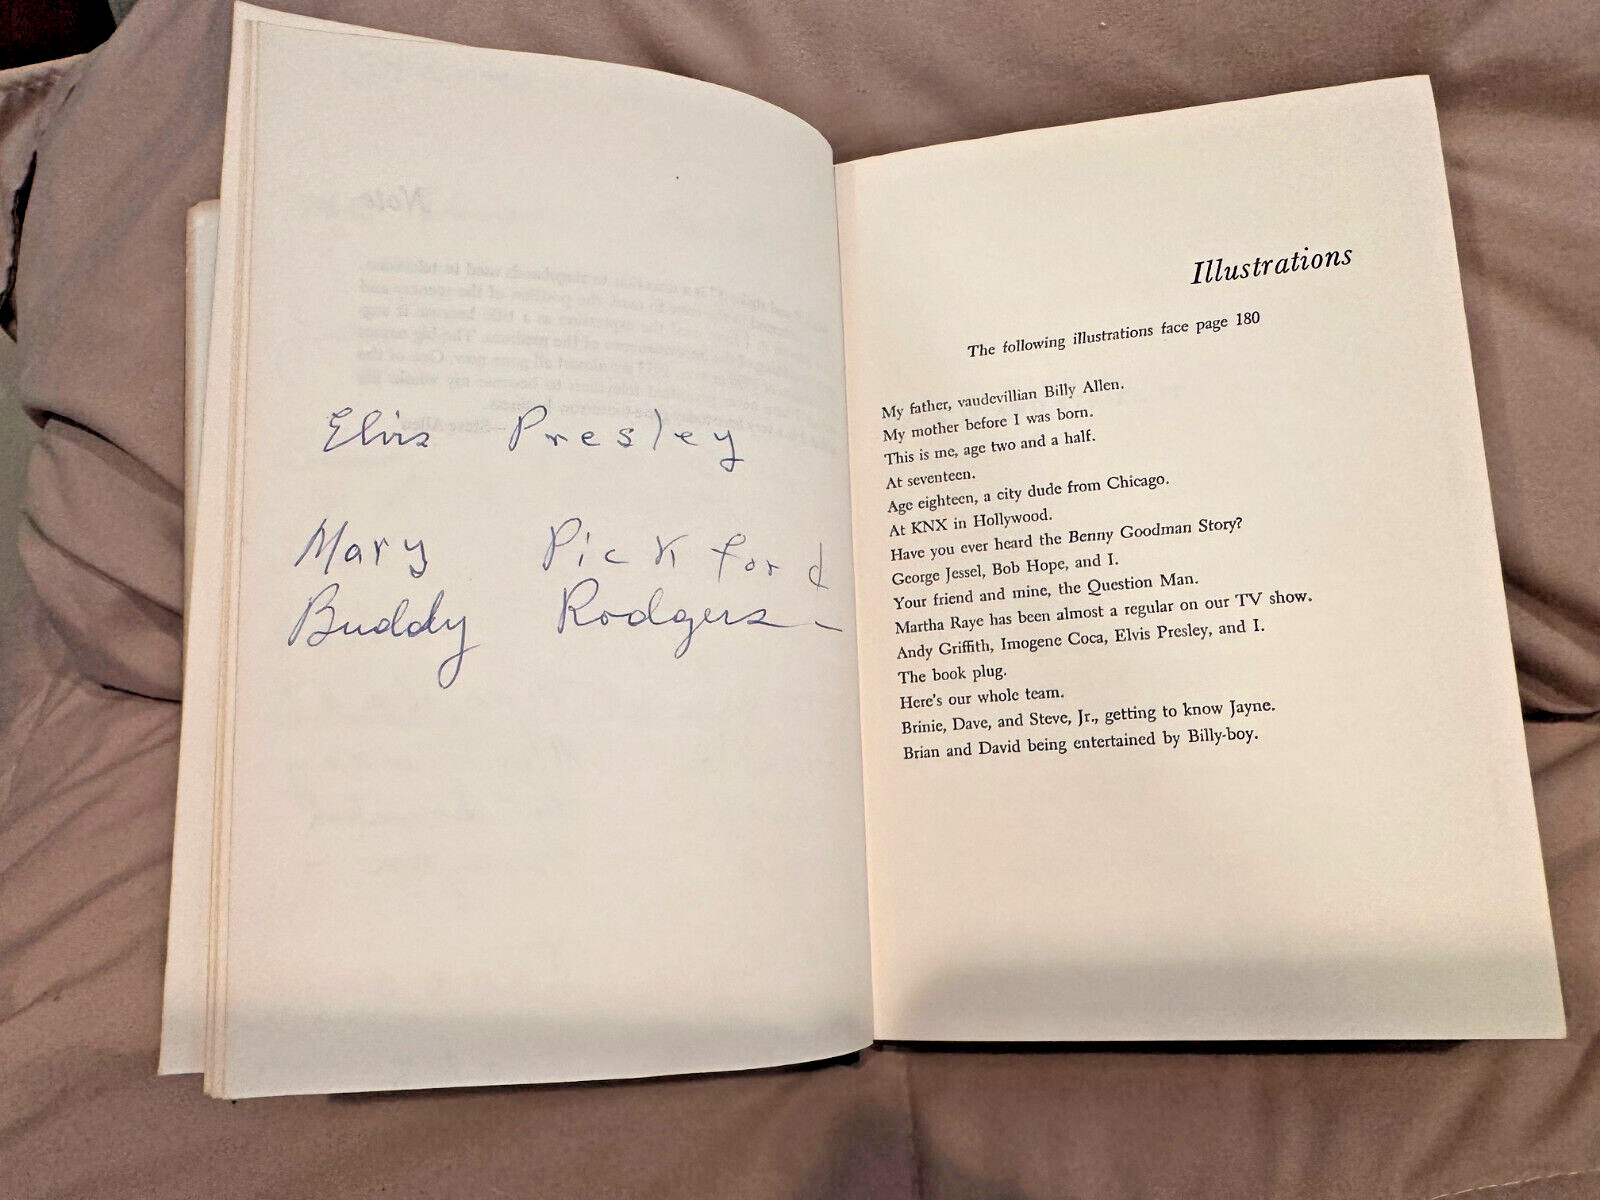 Elvis Presley
Mary Pickford
Buddy Rodgers -
Note
Illustrations
The following illustrations face page 180
My father, vaudevillian Billy Allen.
My mother before I was born.
This is me, age two and a half.
At seventeen.
Age eighteen, a city dude from Chicago.
At KNX in Hollywood.
Have you ever heard the Benny Goodman Story?
George Jessel, Bob Hope, and I.
Your friend and mine, the Question Man.
Martha Raye has been almost a regular on our TV show.
Andy Griffith, Imogene Coca, Elvis Presley, and I.
The book plug.
Here's our whole team.
Brinie, Dave, and Steve, Jr., getting to know Jayne.
Brian and David being entertained by Billy-boy.